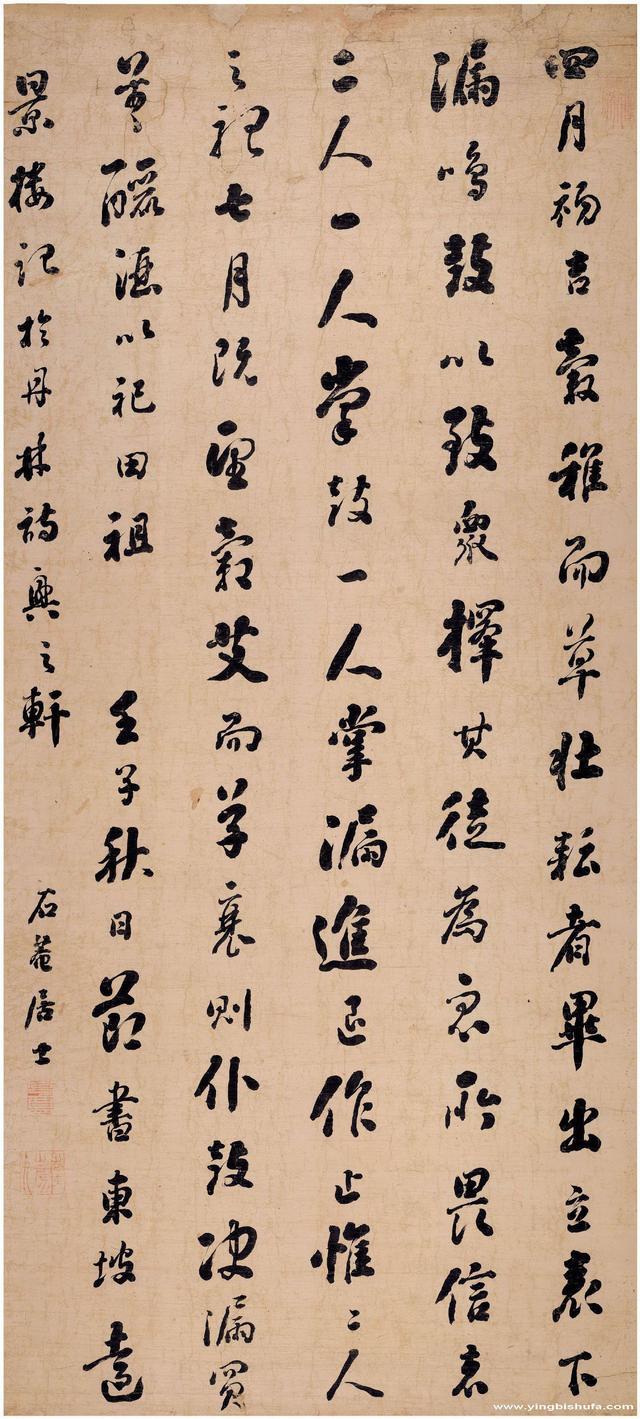 四月初吉穀稚而草壯耘者畢出立表下
漏鳴鼓以致衆擇其徒為衆所畏信者
二人一人掌鼓一人掌漏進退作止惟二人
之聽七月既望穀艾而草衰則仆鼓决漏買
羊釃酒以祀田祖 壬子秋日節書東坡遠
景樓記於丹林詩興之軒 石菴居士
www.yingbishufa.com